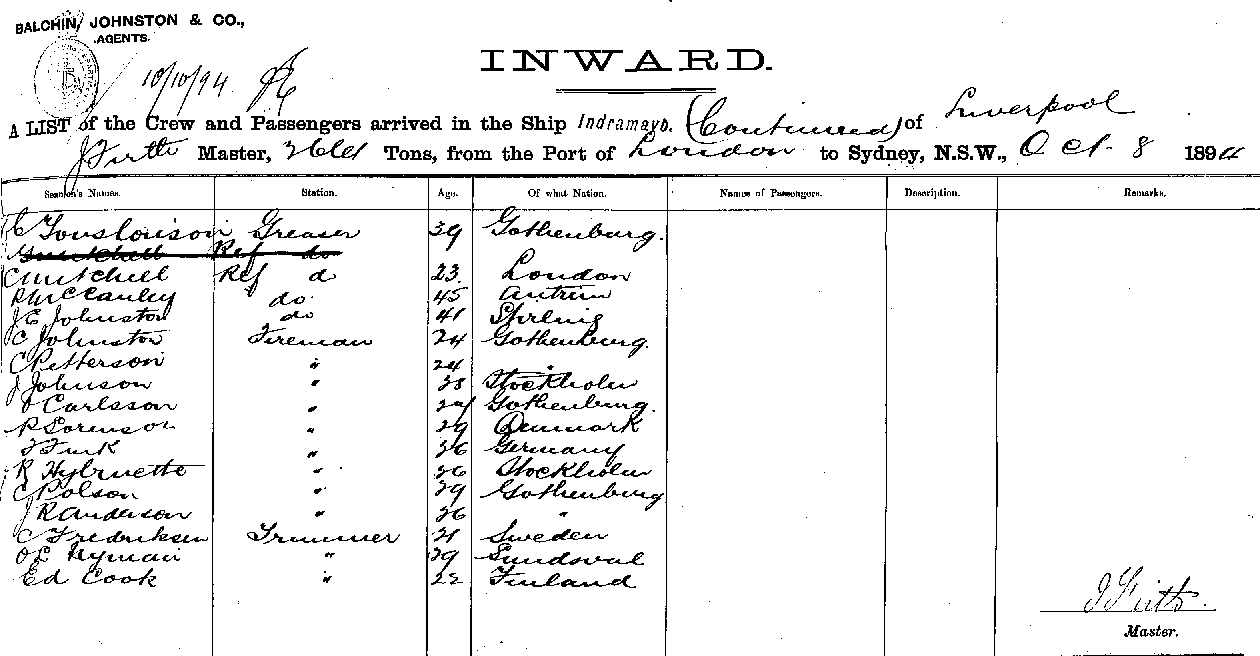 BALCHIN, JOHNSTON & CO.,
AGENTS.
10/10/94
INWARD.
A LIST of the Crew and Passengers arrived in the Ship Indramayo. (Continued) of Liverpool
J Firth Master, Tons, from the Port of London to Sydney, N.S.W., Oct. 8 1894
Seamen's Names. Station. Age. Of what Nation. Names of Passengers. Description. Remarks.
Greaser 39 Gothenburg.
Mitchell Ref do
C Mitchell Ref d 23. London
R McCauley do. 45 Antrim
J E Johnston do 41 Stirling
C Johnston Fireman 24 Gothenburg.
C Petterson " 24 "
J Johnson " 38 Stockholm
Carlsson " 29 Gothenburg.
R Sorenson " 29 Denmark
F Funk " 36 Germany
R " 36 Stockholm
C Polson " 29 Gothenburg
J R Anderson " 26 "
C Fredriksen Trimmer 21 Sweden
O L Nyman " 29 Sundsval
Ed Cook " 22 Finland
J Firth.
Master.